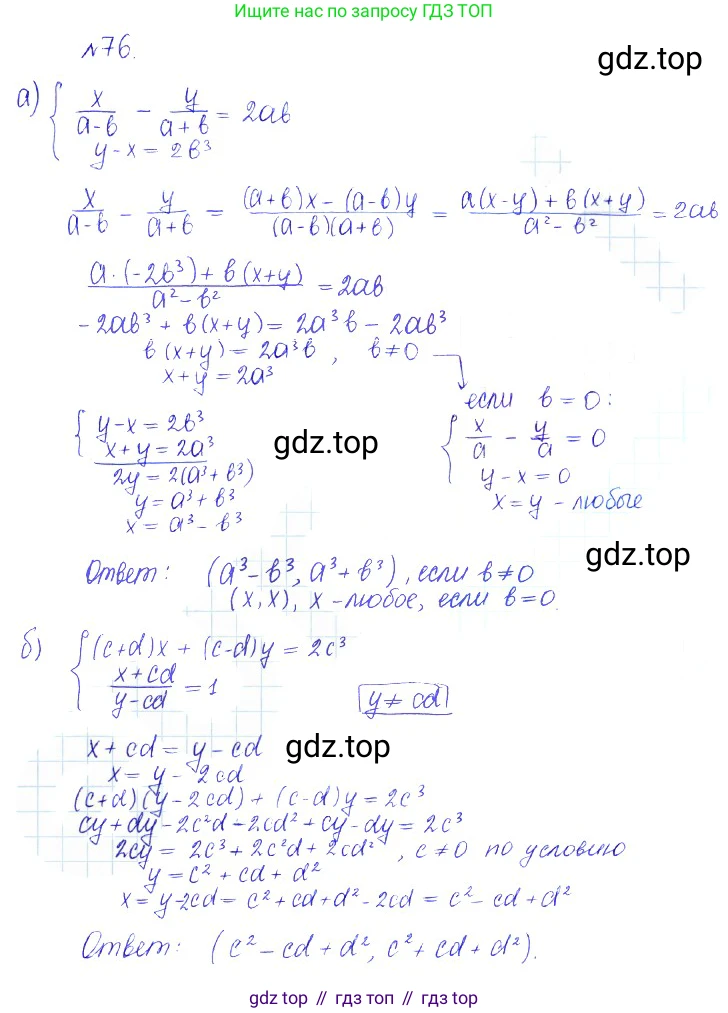 Ищите ответ по запросу ГДЗ ТОП
N76.
gdz.top
а) { x/(a-b) - y/(a+b) = 2ab
y-x = 2b³
x/(a-b) - y/(a+b) = ((a+b)x-(a-b)y)/((a-b)(a+b)) = (a(x-y)+b(x+y))/(a²-b²) = 2ab
(a·(-2b³)+b(x+y))/(a²-b²) = 2ab
-2ab³ + b(x+y) = 2a³b - 2ab³
b(x+y) = 2a³b , b≠0
x+y = 2a³
если b=0:
{ y-x = 2b³
x+y = 2a³
2y = 2(a³+b³)
y = a³+b³
x = a³-b³
gdz.top
{ x/a - y/a = 0
y-x=0
x=y - любое
gdz.top
Ответ: (a³-b³, a³+b³), если b≠0
(x, x), x-любое, если b=0.
б) { (c+d)x + (c-d)y = 2c³
(x+cd)/(y-cd) = 1
y≠cd
x+cd = y-cd
gdz.top
x = y - 2cd
(c+d)(y-2cd) + (c-d)y = 2c³
cy+dy-2c²d-2cd²+cy-dy = 2c³
2cy = 2c³+2c²d+2cd² , c≠0 по условию
y = c²+cd+d²
x = y-2cd = c²+cd+d²-2cd = c²-cd+d²
Ответ: (c²-cd+d², c²+cd+d²).
gdz.top // гдз топ // гдз.top